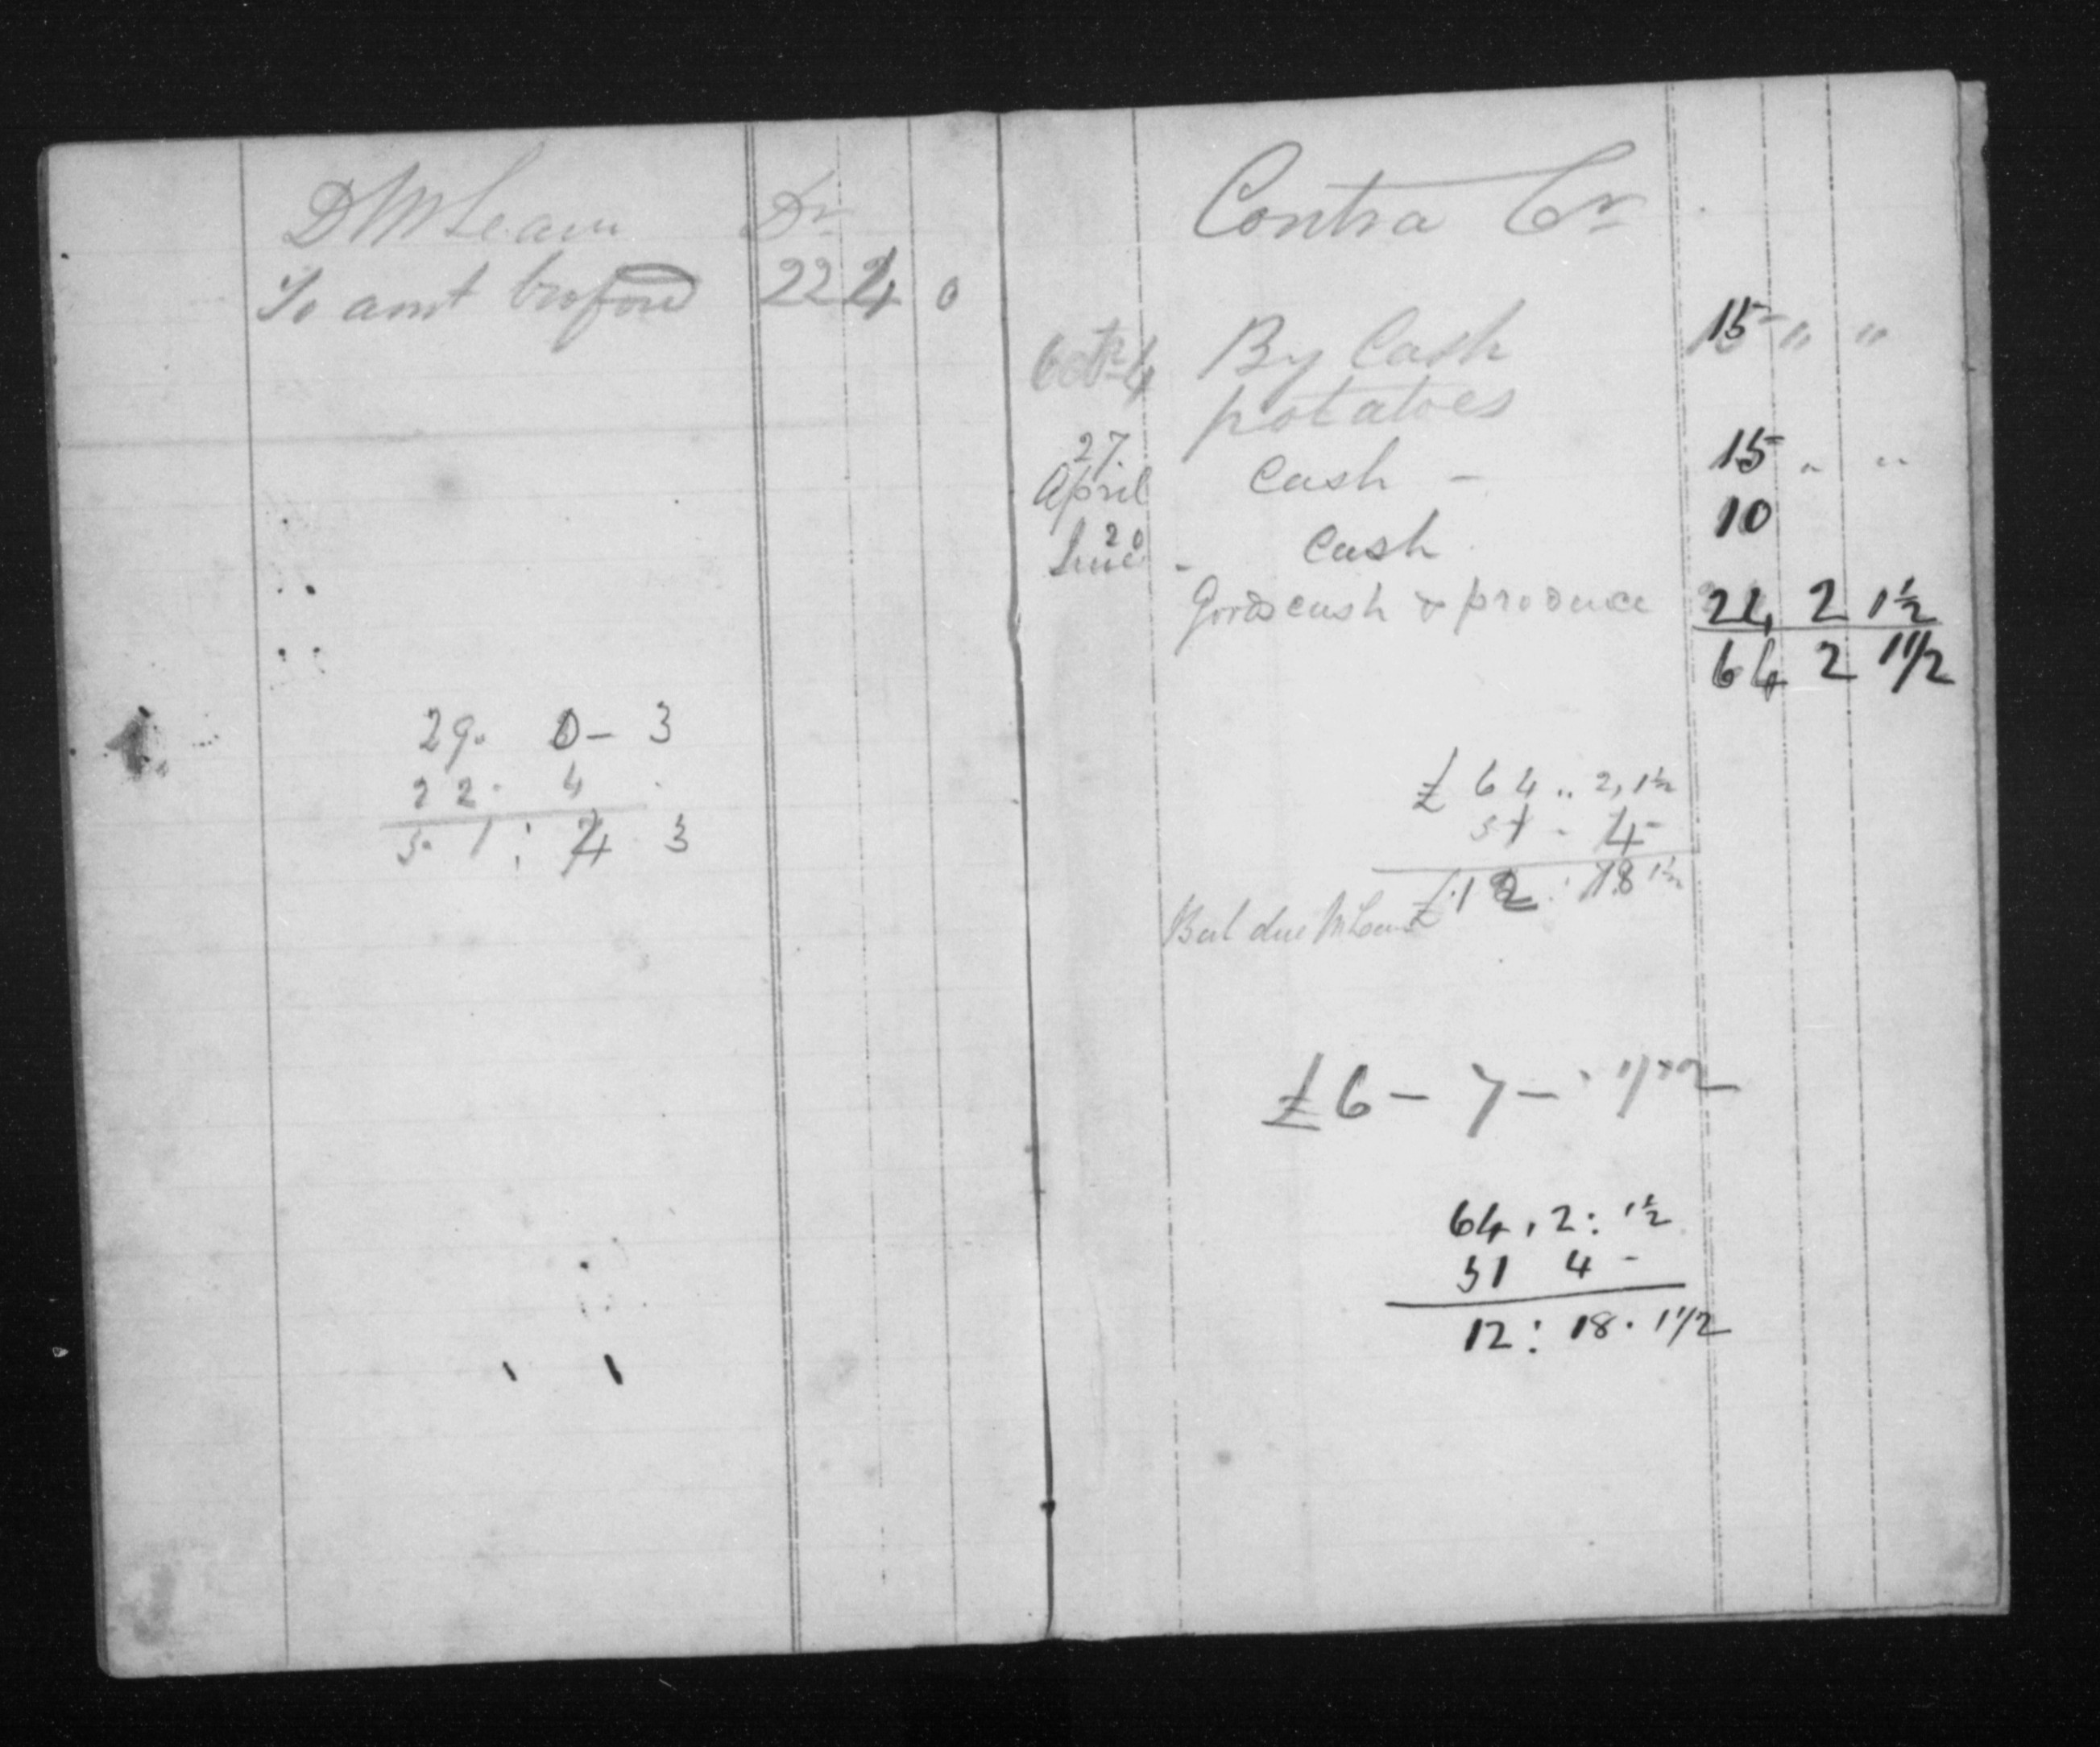 D McLean Dr
To amt bro ford 22 4 0
29. 0 - 3
22. 4
51 : 4 3
Contra Cr
Octr 4 By Cash 15 " "
potatoes
27
April Cash - 15 " "
20
June - Cash 10
Goods cash & produce 24 2 1½
64 2 1 1/2
£ 64 .. 2, 1½
51 - 4 -
£ 12 : 18 1½
Bal due McLean
£6 - 7 -
64 , 2 : 1½
51 4 -
12 : 18 . 1 1/2